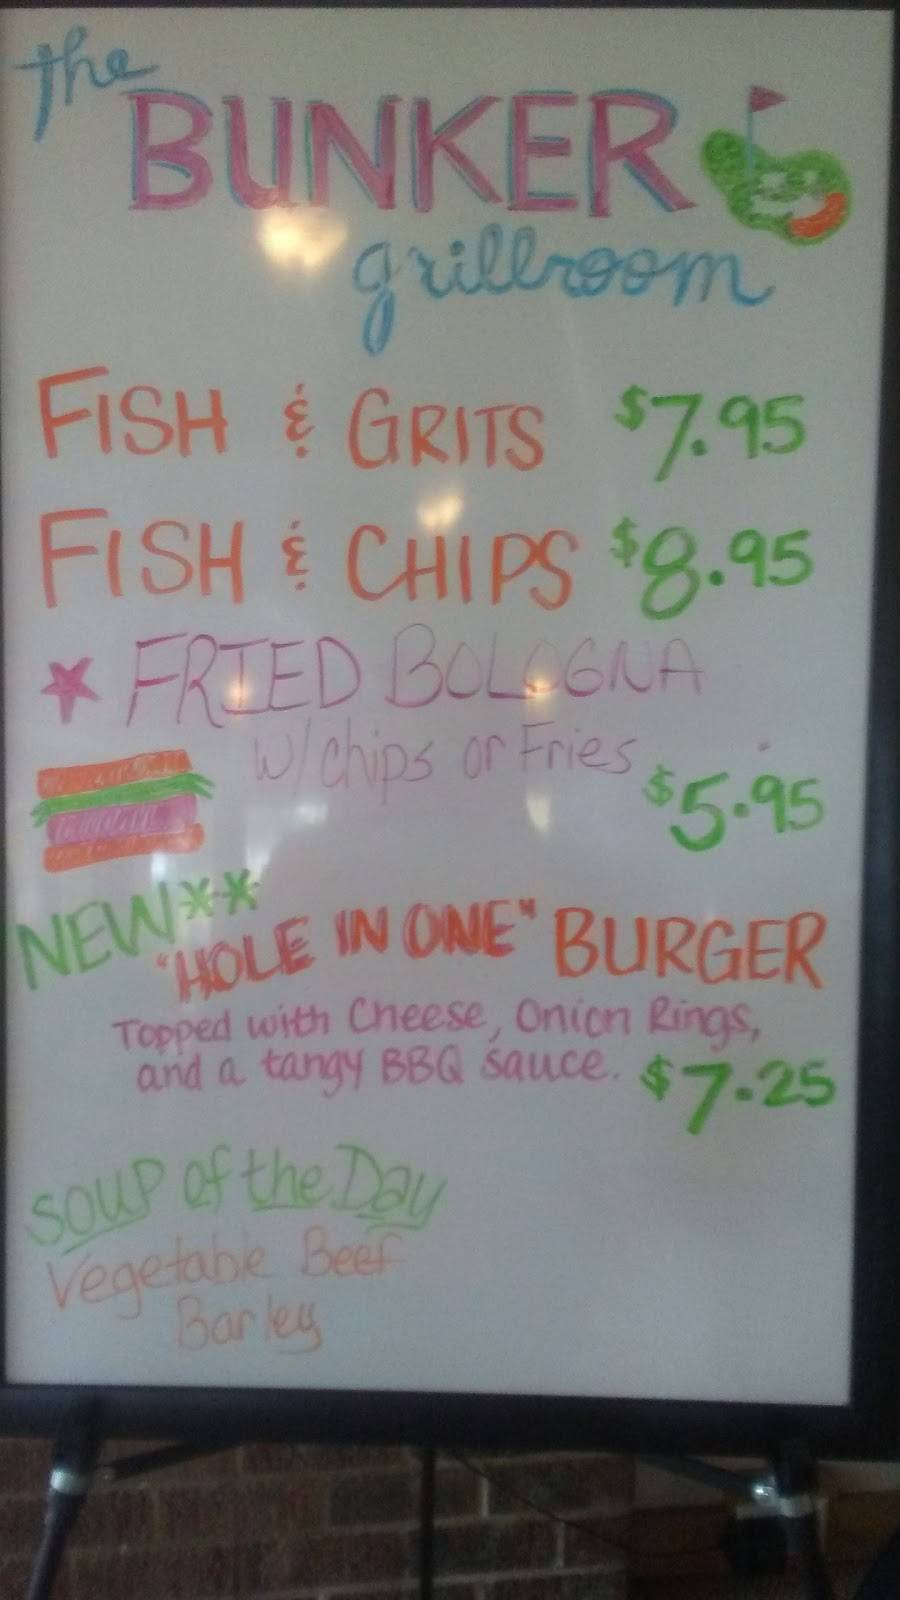 the
BUNKER
grillroom
FISH & GRITS $7.95
FISH & CHIPS $8.95
FRIED BOLOGNA
w/chips or Fries $5.95
NEW**
"HOLE IN ONE" BURGER
Topped with Cheese, Onion Rings,
and a tangy BBQ sauce. $7.25
Soup of the Day
Vegetable Beef
Barley